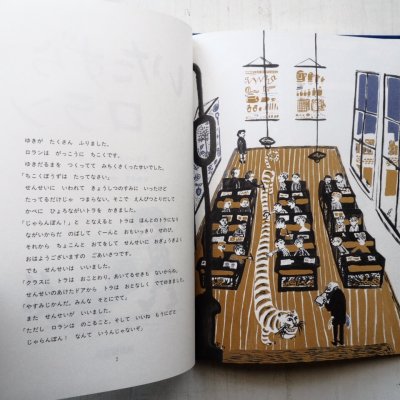 ゆきが　たくさん　ふりました。
ロランは　がっこうに　ちこくです。
ゆきだるまを　つくってて　みちくさくったせいでした。
「ちこくぼうずは　たってなさい」
せんせいに　いわれて　きょうしつのすみに　いったけど
たってるだけじゃ　つまらない。そこで　えんぴつとりだして
かべに　ひょろながいトラを　かきました。
「じゃらんぽん！」と　となえると　トラは　ほんとのトラになり
ながいからだ　のばして　ぐーんと　おもいっきり　せのび、
それから　ちょこんと　おてをして　せんせいに　おぎょうぎよく
おはようございますの　ごあいさつです。
でも　せんせいは　いいました。
「クラスに　トラは　おことわり。あいてるせきも　ないからね。
せんせいのあけたドアから　トラは　おとなしく　でてゆきました。
「やすみじかんだ。みんな　そとにでて」
また　せんせいが　いいました。
「ただし　ロランは　のこること。そして　いいね　もうにどと
じゃらんぽん！　なんて　いうんじゃないぞ」